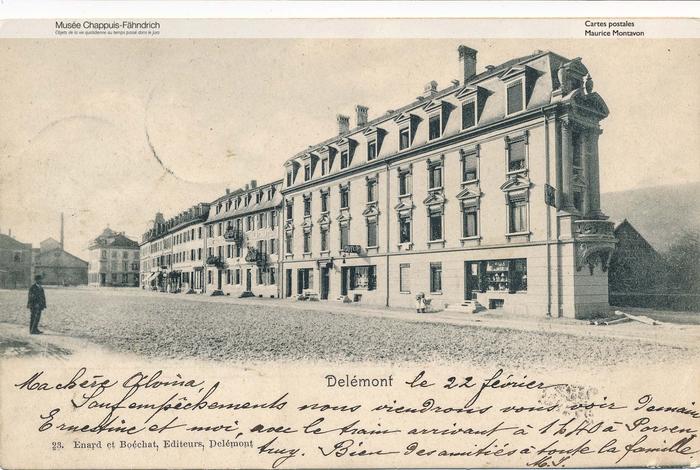 Musée Chappuis-Fähndrich
Objets de la vie quotidienne au temps passé dans le Jura
Cartes postales
Maurice Montavon
Delémont le 22 février
Ma chère Olvina,
Sauf empêchements nous viendrons vous voir demain
Ernestine et moi, avec le train arrivant à 1h40 à Porren
truy. Bien des amitiés à toute la famille.
23. Enard et Boéchat, Editeurs, Delémont
M. S.